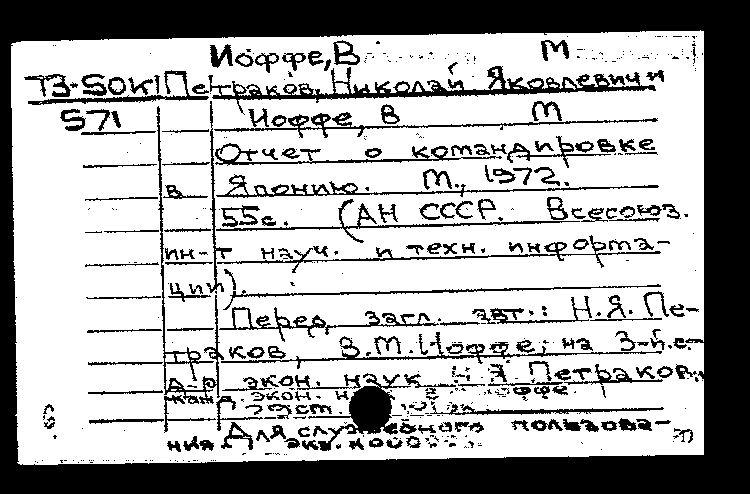 Иоффе, В М
Т3-50К Петраков, Николай Яковлевич и
571 Иоффе, В М
Отчет о командировке
в Японию. М., 1972.
55с. (АН СССР. Всесоюз.
ин-т науч. и техн. информа-
ции).
Перед загл. авт.: Н.Я. Пе-
траков, В.М. Иоффе; на 3-й с.
д-р экон. наук Н Я Петраков,
канд. экон. Иоффе
6.
Для служебного пользова-
ния экз. №